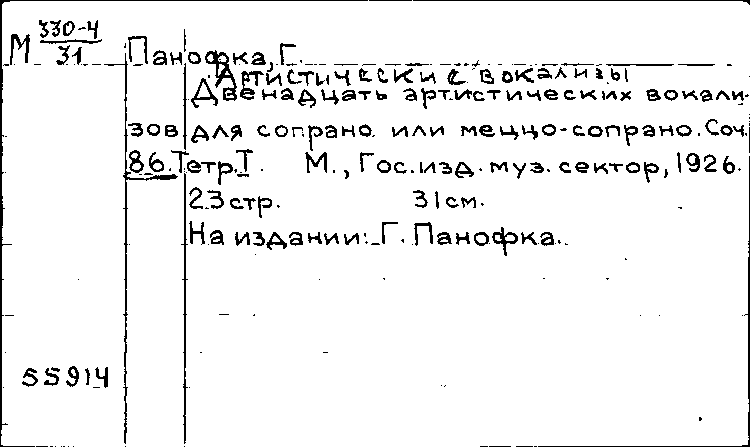 М 330-4
31
Панофка, Г.
Артистические вокализы
Двенадцать артистических вокали-
зов для сопрано или меццо-сопрано. Соч.
86. Тетр. I. М., Гос. изд. муз. сектор, 1926.
23 стр. 31 см.
На издании: Г. Панофка.
55914